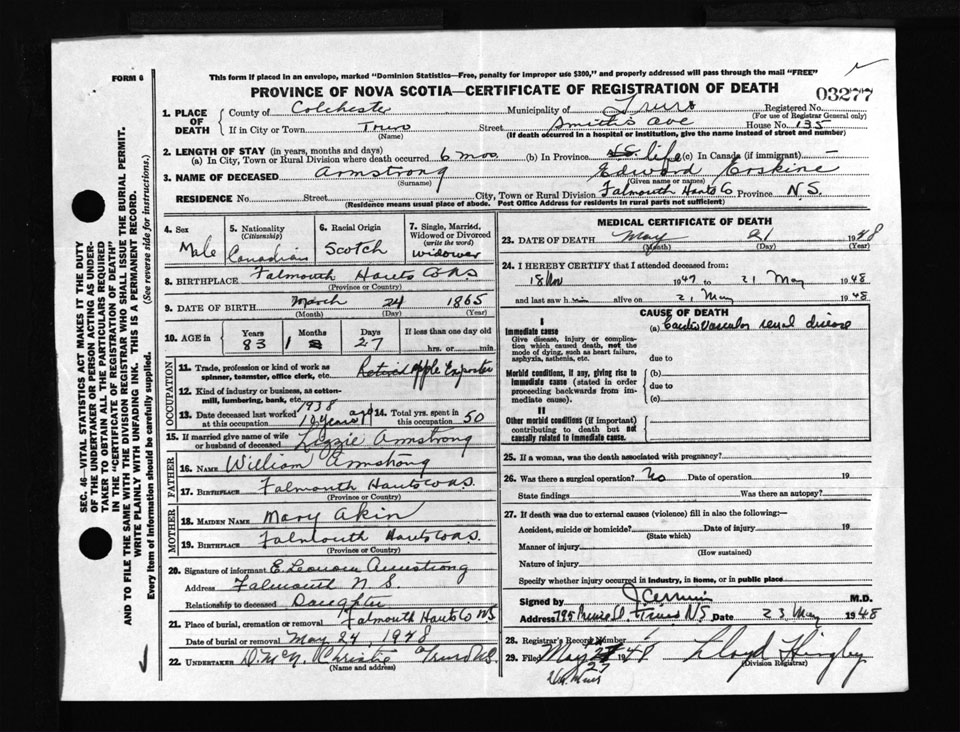 FORM 6
This form if placed in an envelope, marked "Dominion Statistics—Free, penalty for improper use $300," and properly addressed will pass through the mail "FREE"
PROVINCE OF NOVA SCOTIA—CERTIFICATE OF REGISTRATION OF DEATH
03277
1. PLACE OF DEATH
County of Colchester Municipality of Truro Registered No.
(For use of Registrar General only)
If in City or Town Truro Street Smith's Ave House No. 135
(Name) (If death occurred in a hospital or institution, give the name instead of street and number)
2. LENGTH OF STAY (in years, months and days)
(a) In City, Town or Rural Division where death occurred 6 mos. (b) In Province life (c) In Canada (if immigrant) —
3. NAME OF DECEASED Armstrong Edward Erskine
(Surname) (Given name or names)
RESIDENCE No. Street City, Town or Rural Division Falmouth Hants Co Province N.S.
(Residence means usual place of abode. Post Office Address for residents in rural parts not sufficient)
4. Sex Male
5. Nationality (Citizenship) Canadian
6. Racial Origin Scotch
7. Single, Married, Widowed or Divorced (write the word) widower
8. BIRTHPLACE Falmouth Hants Co NS
(Province or Country)
9. DATE OF BIRTH March 24 1865
(Month) (Day) (Year)
10. AGE in Years 83 Months 1 Days 27 If less than one day old hrs. or min.
OCCUPATION
11. Trade, profession or kind of work as spinner, teamster, office clerk, etc. Retired Apple Exporter
12. Kind of industry or business, as cotton-mill, lumbering, bank, etc.
13. Date deceased last worked at this occupation 1938 10 years ago
14. Total yrs. spent in this occupation 50
15. If married give name of wife or husband of deceased Lizzie Armstrong
FATHER
16. NAME William Armstrong
17. BIRTHPLACE Falmouth Hants Co NS.
(Province or Country)
MOTHER
18. MAIDEN NAME Mary Akin
19. BIRTHPLACE Falmouth Hants Co NS.
(Province or Country)
20. Signature of informant E. Armstrong
Address Falmouth N.S.
Relationship to deceased Daughter
21. Place of burial, cremation or removal Falmouth Hants Co NS
Date of burial or removal May 24, 1948
22. UNDERTAKER Christie Truro N.S.
(Name and address)
MEDICAL CERTIFICATE OF DEATH
23. DATE OF DEATH May 21 1948
(Month) (Day) (Year)
24. I HEREBY CERTIFY that I attended deceased from:
18 Nov 1947 to 21 May 1948
and last saw him alive on 21 May 1948
CAUSE OF DEATH
I
Immediate cause (a) Cardio Vascular renal disease
Give disease, injury or complication which caused death, not the mode of dying, such as heart failure, asphyxia, asthenia, etc. due to
Morbid conditions, if any, giving rise to immediate cause (stated in order proceeding backwards from immediate cause). (b)
due to
(c)
II
Other morbid conditions (if important) contributing to death but not causally related to immediate cause.
25. If a woman, was the death associated with pregnancy?
26. Was there a surgical operation? No Date of operation 19
State findings Was there an autopsy?
27. If death was due to external causes (violence) fill in also the following:—
Accident, suicide or homicide? Date of injury 19
(State which)
Manner of injury
(How sustained)
Nature of injury
Specify whether injury occurred in industry, in home, or in public place
Signed by M.D.
Address 795 Prince St. Truro N.S Date 23 May 1948
28. Registrar's Record Number
29. Filed May 1948 Lloyd Hingley
(Division Registrar)
SEC. 46—VITAL STATISTICS ACT MAKES IT THE DUTY
OF THE UNDERTAKER OR PERSON ACTING AS UNDER-
TAKER TO OBTAIN ALL THE PARTICULARS REQUIRED
IN THE "CERTIFICATE OF REGISTRATION OF DEATH"
AND TO FILE THE SAME WITH THE DIVISION REGISTRAR WHO SHALL ISSUE THE BURIAL PERMIT.
WRITE PLAINLY WITH UNFADING INK. THIS IS A PERMANENT RECORD.
Every item of information should be carefully supplied. (See reverse side for instructions.)